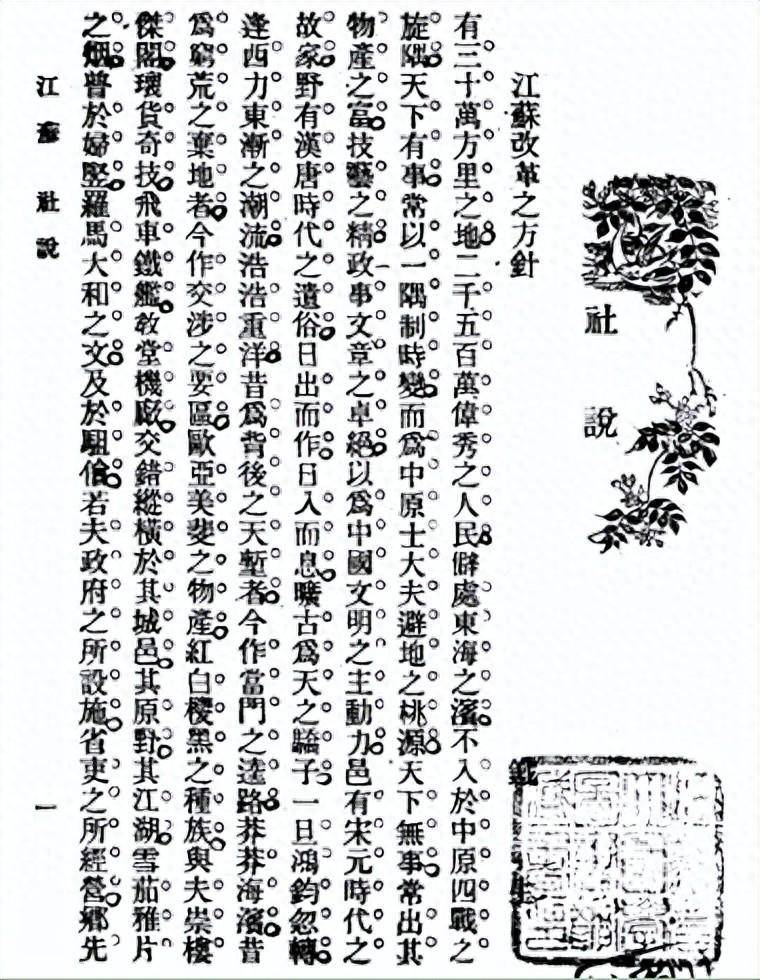 社說
江蘇改革之方針
有三十萬方里之地二千五百萬偉秀之人民僻處東海之濱不入於中原四戰之
旋隅天下有事常以一隅制時變而爲中原士大夫避地之桃源天下無事常出其
物產之富技藝之精政事文章之卓絕以爲中國文明之主動力邑有宋元時代之
故家野有漢唐時代之遺俗日出而作日入而息曠古爲天之驕子一旦鴻鈞忽轉
逢西力東漸之潮流浩浩重洋昔爲背後之天塹者今作當門之逵路莽莽海濱昔
爲窮荒之棄地者今作交涉之要區歐亞美斐之物產紅白椶黑之種族與夫崇樓
傑閣瓌貨奇技飛車鐵艦敎堂機廠交錯縱橫於其城邑其原野其江湖雪茄雅片
之烟普於婦豎羅馬大和之文及於駔儈若夫政府之所設施省吏之所經營鄉先
江蘇 社說
一